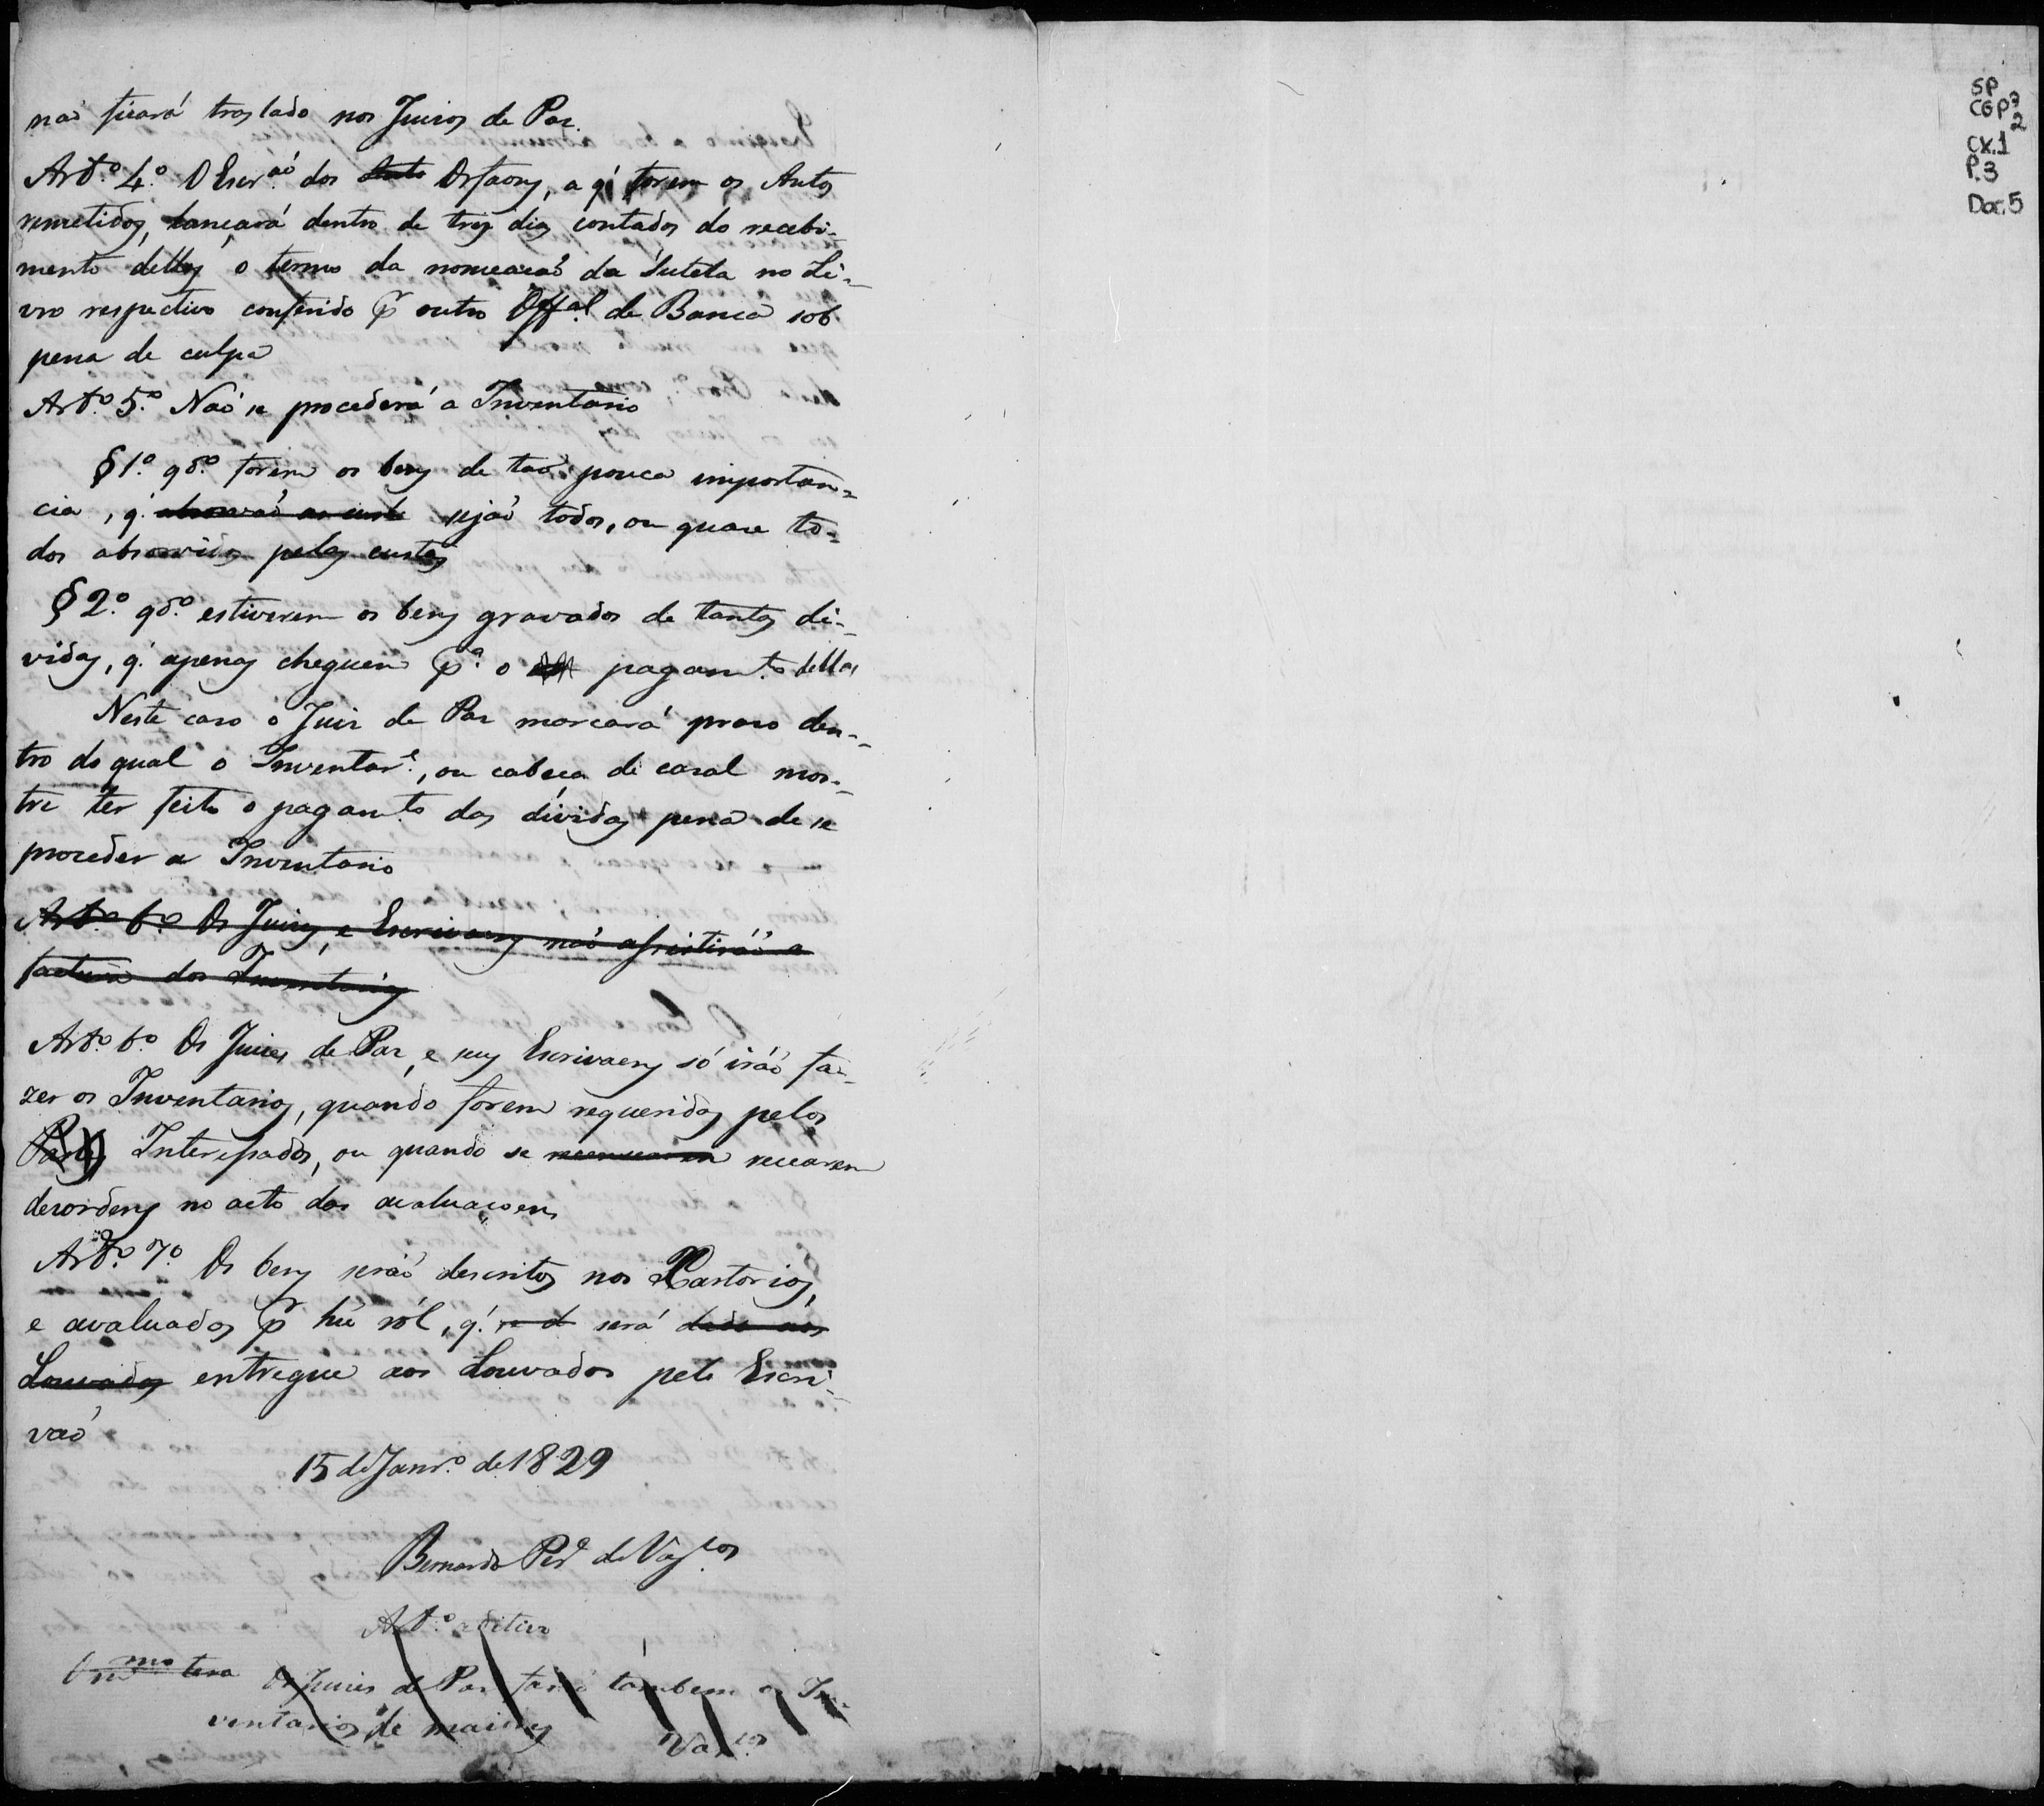 naõ ficará traslado nos Juizos de Paz.
Artº. 4.º O Escr.aõ dos Orfaõs, a q. forem os Autos
remetidos, lançará dentro de tres dias contados do recebi-
mento delles o termo da nomeaçaõ da Tutela no Li-
vro respectivo conferido p outro Offal. de Banca sob
pena de culpa
Artº. 5.º Naõ se procederá a Inventario
§ 1.º qdº. forem os bens de taõ pouca importan-
cia, q. absorvaõ as custas sejaõ todos, ou quase to-
dos absorvidos pelas custas
§ 2.º qdº. estiverem os bens gravados de tantas di-
vidas, q. apenas cheguem pª. o pagamto. dellas
Neste caso o Juiz de Paz marcará prazo den-
tro do qual o Inventare., ou cabeça de casal mos-
tre ter feito o pagamto. das dividas pena de se
proceder a Inventario
Artº. 6.º Os Juizes, e Escrivaens naõ assistiráõ a
factura dos Inventarios
Artº. 6º. Os Juizes de Paz, e seus Escrivaens só iráõ fa-
zer os Inventarios, quando forem requeridos pelos
Partes Interessados, ou quando se recearem
desordens no acto das avaluaçoens
Artº. 7º. Os bens seraõ descritos nos Cartorios,
e avaluados p hu ról, q. será dado aos
Louvados entregue aos Louvados pelo Escri-
vaõ
15 de Janrº. de 1829
Bernardo Perª de Vascos.
Artº. aditivo
Os Juizes de Paz faraõ tambem os In-
ventarios de maiores
Vascos.
SP
CGP3
2
CX.1
P.3
Doc.5